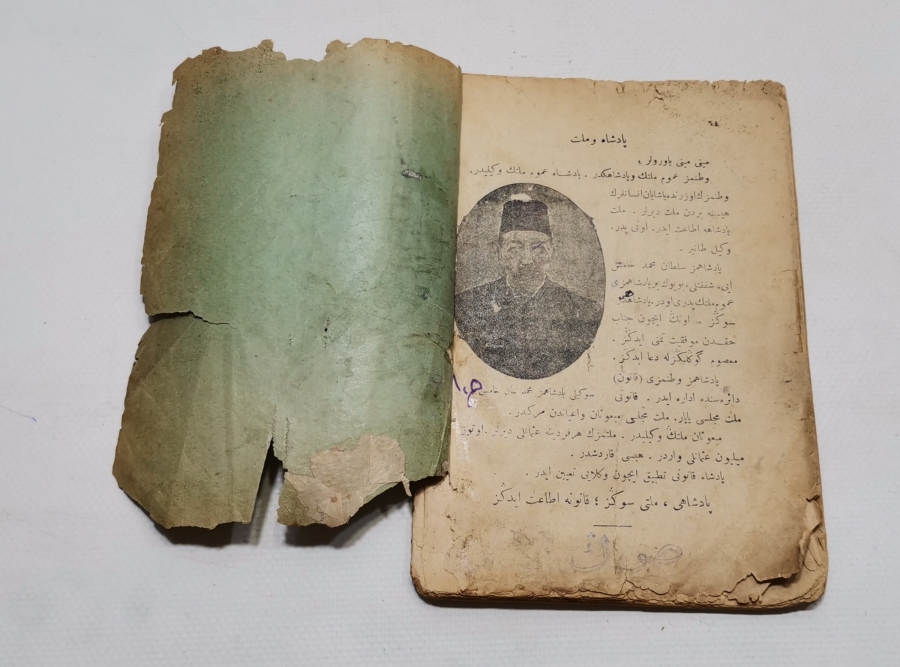 ٦٤
پادشاه و ملت
مینی مینی یاورولر ،
وطنمز عموم ملتك وپادشاهكدر . پادشاه عموم ملتك وكیلیدر.
وطنمزك اوزرنده یاشایان انسانلرك
جمیعنه بردن ملت دیرلر . ملت
پادشاهه اطاعت ایدر. اونی پدر،
وكیل طانیر .
پادشاهمز سلطان محمد خامس
ایی، شفقتلی، بویوك بر پادشاهمزدی
عموم ملتك پدری اودر، پادشاهكزی
سوكز . اونك ایچون جناب
حقدن موفقیت تمنی ایدكز .
معصوم كوكلكزله دعا ایدكز .
پادشاهمز وطنمزی (قانون)
سوكیلی پادشاهمز محمد خان خامس
دائره‌سنده اداره ایدر . قانونی
ملت مجلسی یاپار. ملت مجلسی مبعوثان واعیاندن مركبدر.
مبعوثان ملتڭ وكیلیدر . ملتمزك هرفردینه عثمانلی دیرلر. اوتوز
میلیون عثمانلی واردر . هپسی قارداشدر.
پادشاه قانونی تطبیق ایچون وكلایی تعیین ایدر .
پادشاهی ، ملتی سوكڭز ؛ قانونه اطاعت ایدكڭز